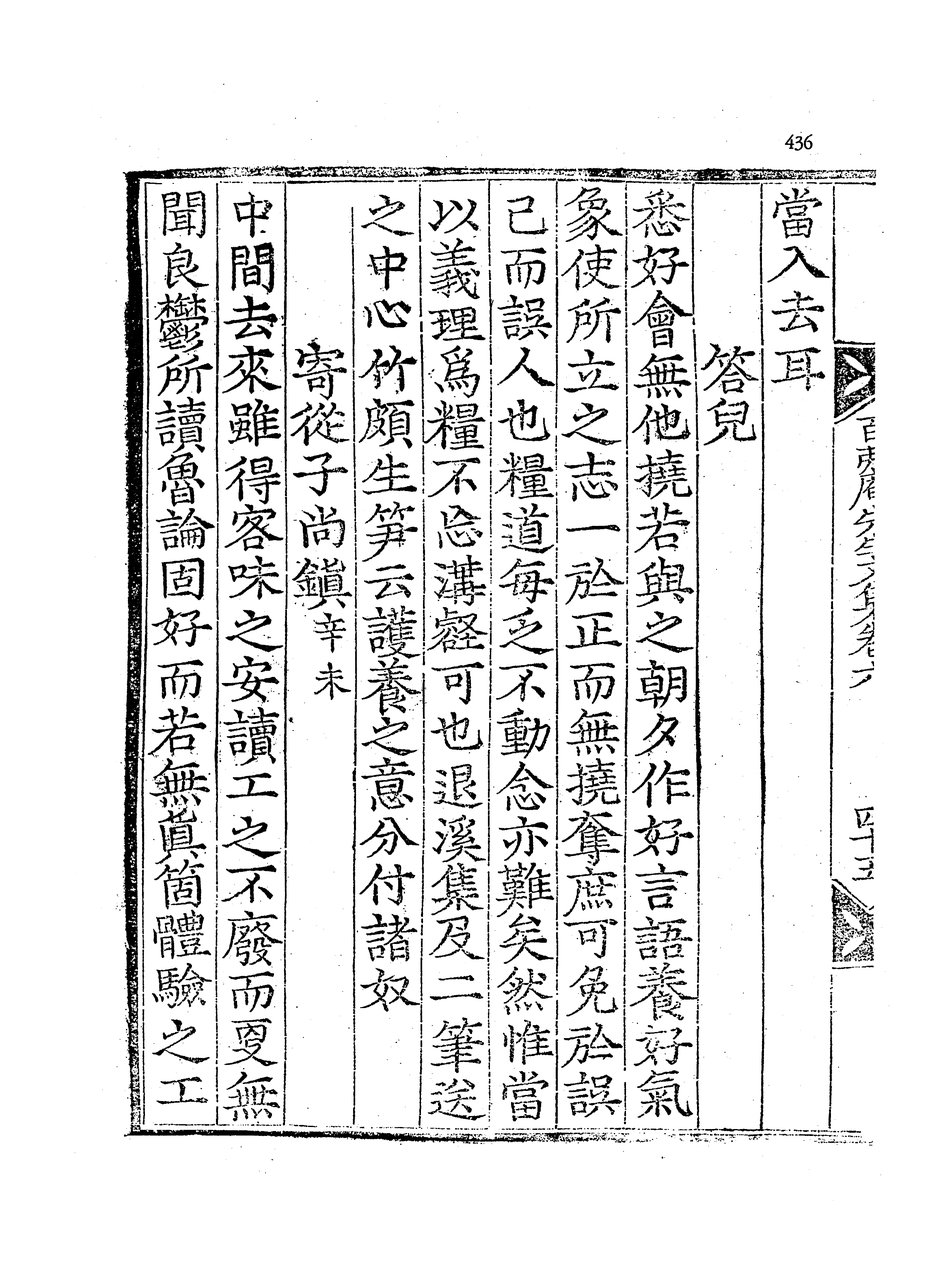 436
庵先生文集卷六
四十五
當入去耳
答兒
悉好會無他撓若與之朝夕作好言語養好氣
象使所立之志一於正而無撓奪庶可免於誤
己而誤人也糧道每乏不動念亦難矣然惟當
以義理爲糧不忘溝壑可也退溪集及二筆送
之中心竹頗生笋云護養之意分付諸奴
寄從子尚鎭辛未
中間去來雖得客味之安讀工之不廢而更無
聞良鬱所讀魯論固好而若無眞箇體驗之工